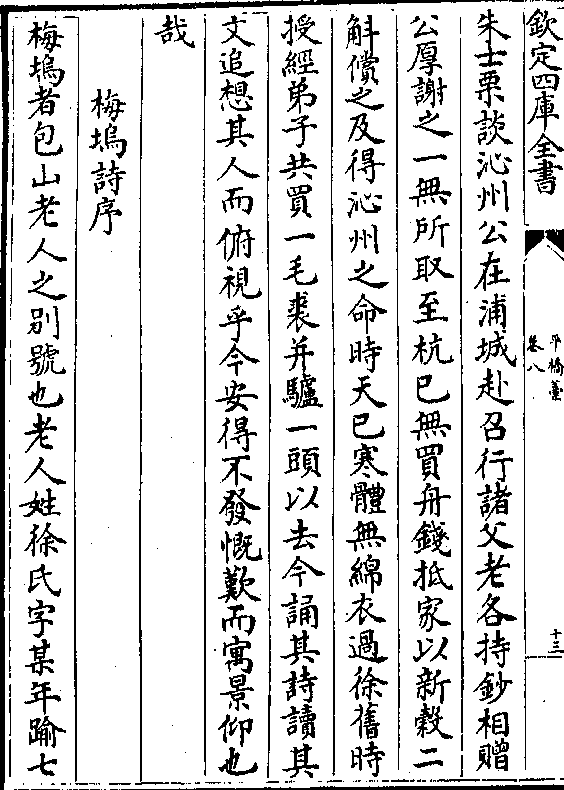 欽定四庫全書
平橋藁
卷八
十三
朱士栗談沁州公在浦城赴召行諸父老各持鈔相贈
公厚謝之一無所取至杭已無買舟錢抵家以新穀二
斛償之及得沁州之命時天已寒體無綿衣過徐舊時
授經弟子共買一毛裘并驢一頭以去今誦其詩讀其
文追想其人而俯視乎今安得不發慨歎而寓景仰也
哉
梅塢詩序
梅塢者包山老人之别號也老人姓徐氏字某年踰七